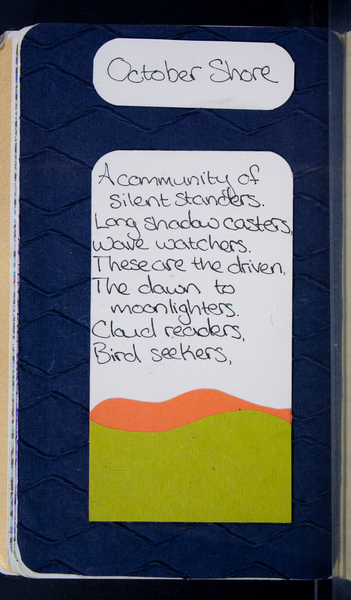 October Shore
A community of
silent standers.
Long shadow casters,
wave watchers.
These are the driven.
The dawn to
moonlighters.
Cloud readers,
Bird seekers,